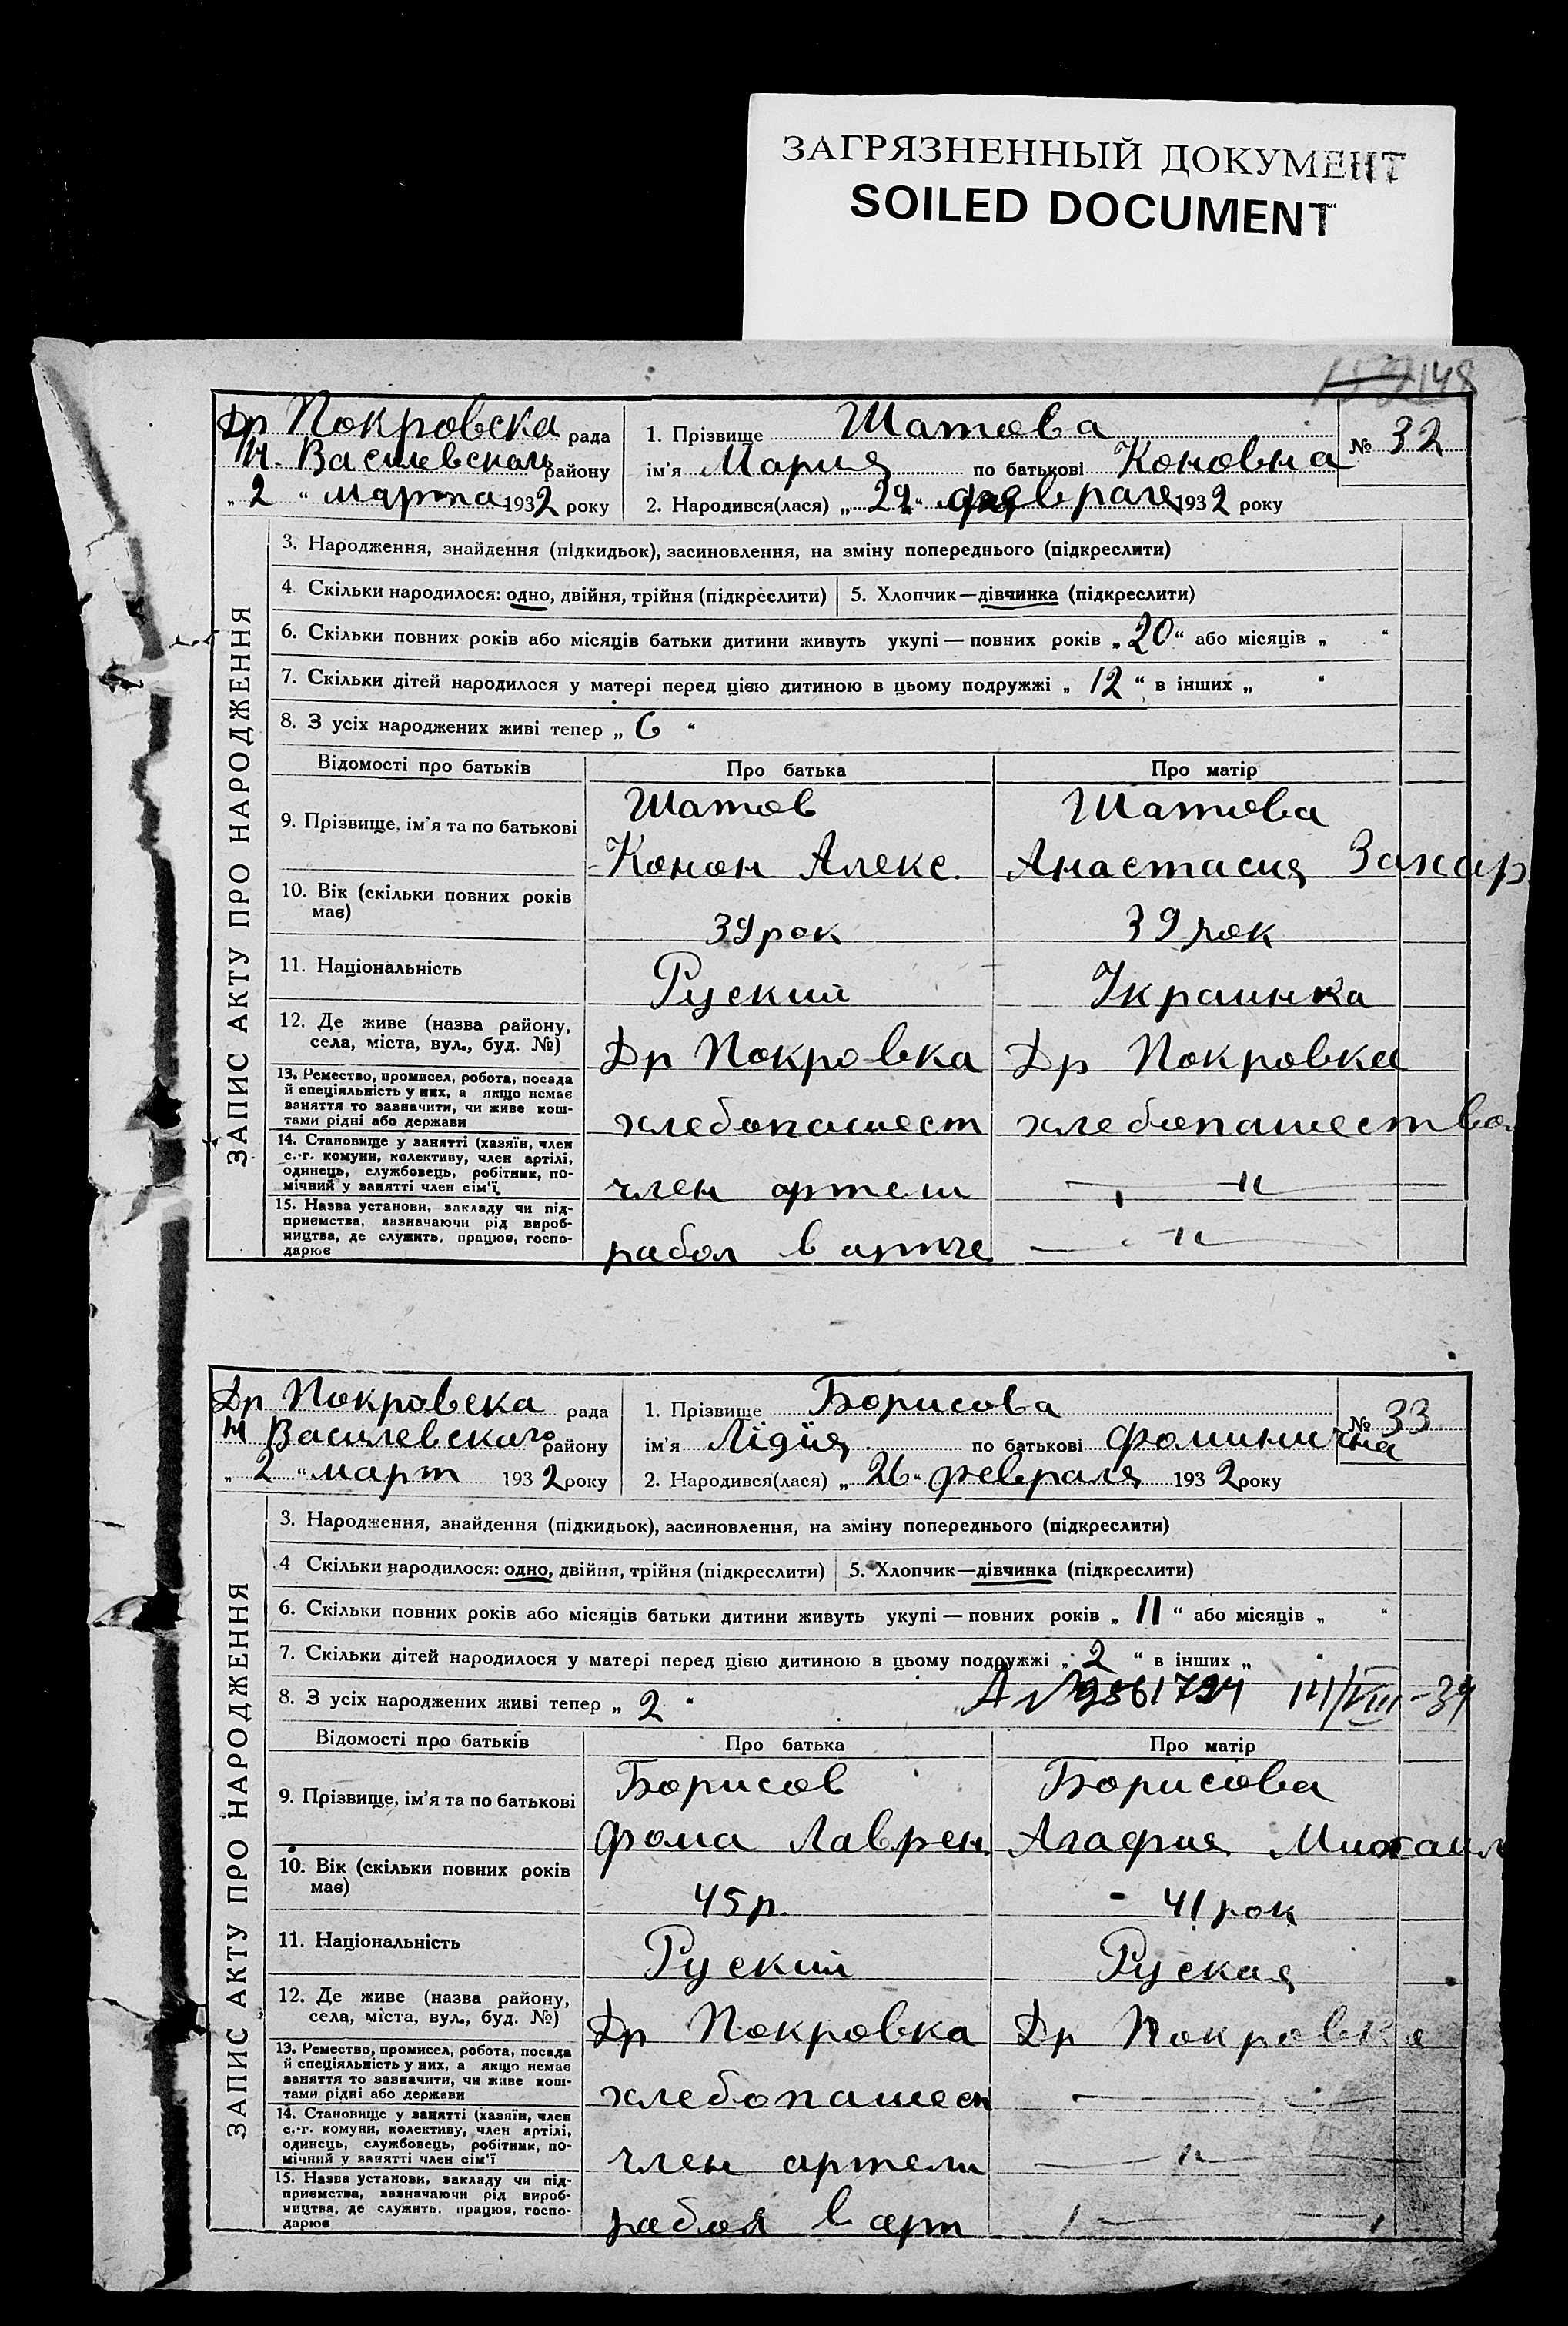 ЗАГРЯЗНЕННЫЙ ДОКУМЕНТ
SOILED DOCUMENT
148
Др Покровска рада
Н. Василевскаго району
„ 2 “ марта 1932 року
1. Прізвище Шатова
ім'я Мария по батькові Коновна
№ 32
2. Народився(лася) „ 29 “ февраля 1932 року
ЗАПИС АКТУ ПРО НАРОДЖЕННЯ
3. Народження, знайдення (підкидьок), засиновлення, на зміну попереднього (підкреслити)
4. Скільки народилося: одно, двійня, трійня (підкреслити) 5. Хлопчик—дівчинка (підкреслити)
6. Скільки повних років або місяців батьки дитини живуть укупі — повних років „ 20 “ або місяців „ “
7. Скільки дітей народилося у матері перед цією дитиною в цьому подружжі „ 12 “ в інших „ “
8. З усіх народжених живі тепер „ 6 “
Відомості про батьків Про батька Про матір
9. Прізвище, ім'я та по батькові
Шатов Шатова
Конон Алекс. Анастасия Захар
10. Вік (скільки повних років
має)
39 рок 39 рок
11. Національність
Руский Украинка
12. Де живе (назва району,
села, міста, вул., буд. №)
Др Покровка Др Покровка
13. Ремество, промисел, робота, посада
й спеціяльність у них, а якщо немає
заняття то зазначити, чи живе кош-
тами рідні або держави
хлебопашест хлебопашества
14. Становище у занятті (хазяїн, член
с.-г. комуни, колективу, член артілі,
одинець, службовець, робітник, по-
мічний у занятті член сім'ї
член артели — " —
15. Назва установи, закладу чи під-
приємства, зазначаючи рід вироб-
ництва, де служить, працює, госпо-
дарює
работ в артле — " —
Др Покровска рада
Н Василевскаго району
„ 2 “ март 1932 року
1. Прізвище Борисова
ім'я Лідия по батькові Фоминична
№ 33
2. Народився(лася) „ 26 “ февраля 1932 року
ЗАПИС АКТУ ПРО НАРОДЖЕННЯ
3. Народження, знайдення (підкидьок), засиновлення, на зміну попереднього (підкреслити)
4 Скільки народилося: одно, двійня, трійня (підкреслити) 5. Хлопчик—дівчинка (підкреслити)
6. Скільки повних років або місяців батьки дитини живуть укупі — повних років „ 11 “ або місяців „ “
7. Скільки дітей народилося у матері перед цією дитиною в цьому подружжі „ 2 “ в інших „ “
8. З усіх народжених живі тепер „ 2 “
Відомості про батьків Про батька Про матір
9. Прізвище, ім'я та по батькові
Борисов Борисова
Фома Лаврен. Агафия Михаил
10. Вік (скільки повних років
має)
45 р. 41 рок
11. Національність
Руский Руская
12. Де живе (назва району,
села, міста, вул., буд. №)
Др Покровка Др Покровка
13. Ремество, промисел, робота, посада
й спеціяльність у них, а якщо немає
заняття то зазначити, чи живе кош-
тами рідні або держави
хлебопашест
14. Становище у занятті (хазяїн, член
с.-г. комуни, колективу, член артілі,
одинець, службовець, робітник, по-
мічний у занятті член сім'ї
член артели — " —
15. Назва установи, закладу чи під-
приємства, зазначаючи рід вироб-
ництва, де служить, працює, госпо-
дарює
работ в арт